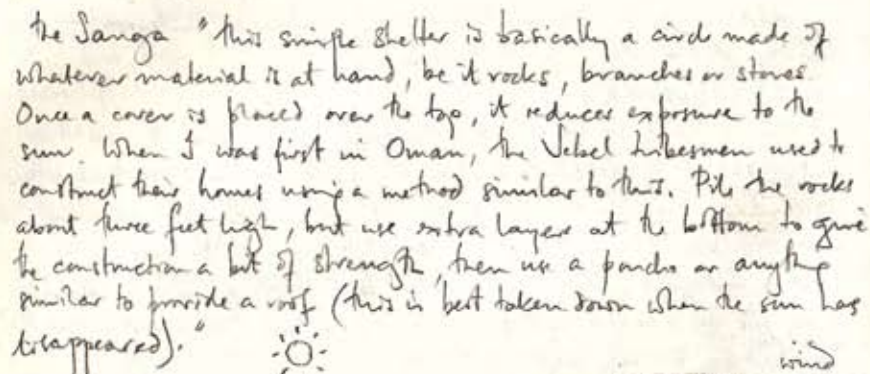 the Sanga "this simple shelter is basically a circle made of
whatever material is at hand, be it rocks, branches or stones.
Once a cover is placed over the top, it reduces exposure to the
sun. When I was first in Oman, the Jebel tribesmen used to
construct their homes using a method similar to this. Pile the rocks
about three feet high, but use extra layers at the bottom to give
the construction a bit of strength, then use a poncho or anything
similar to provide a roof (this is best taken down when the sun has
disappeared)."
wind